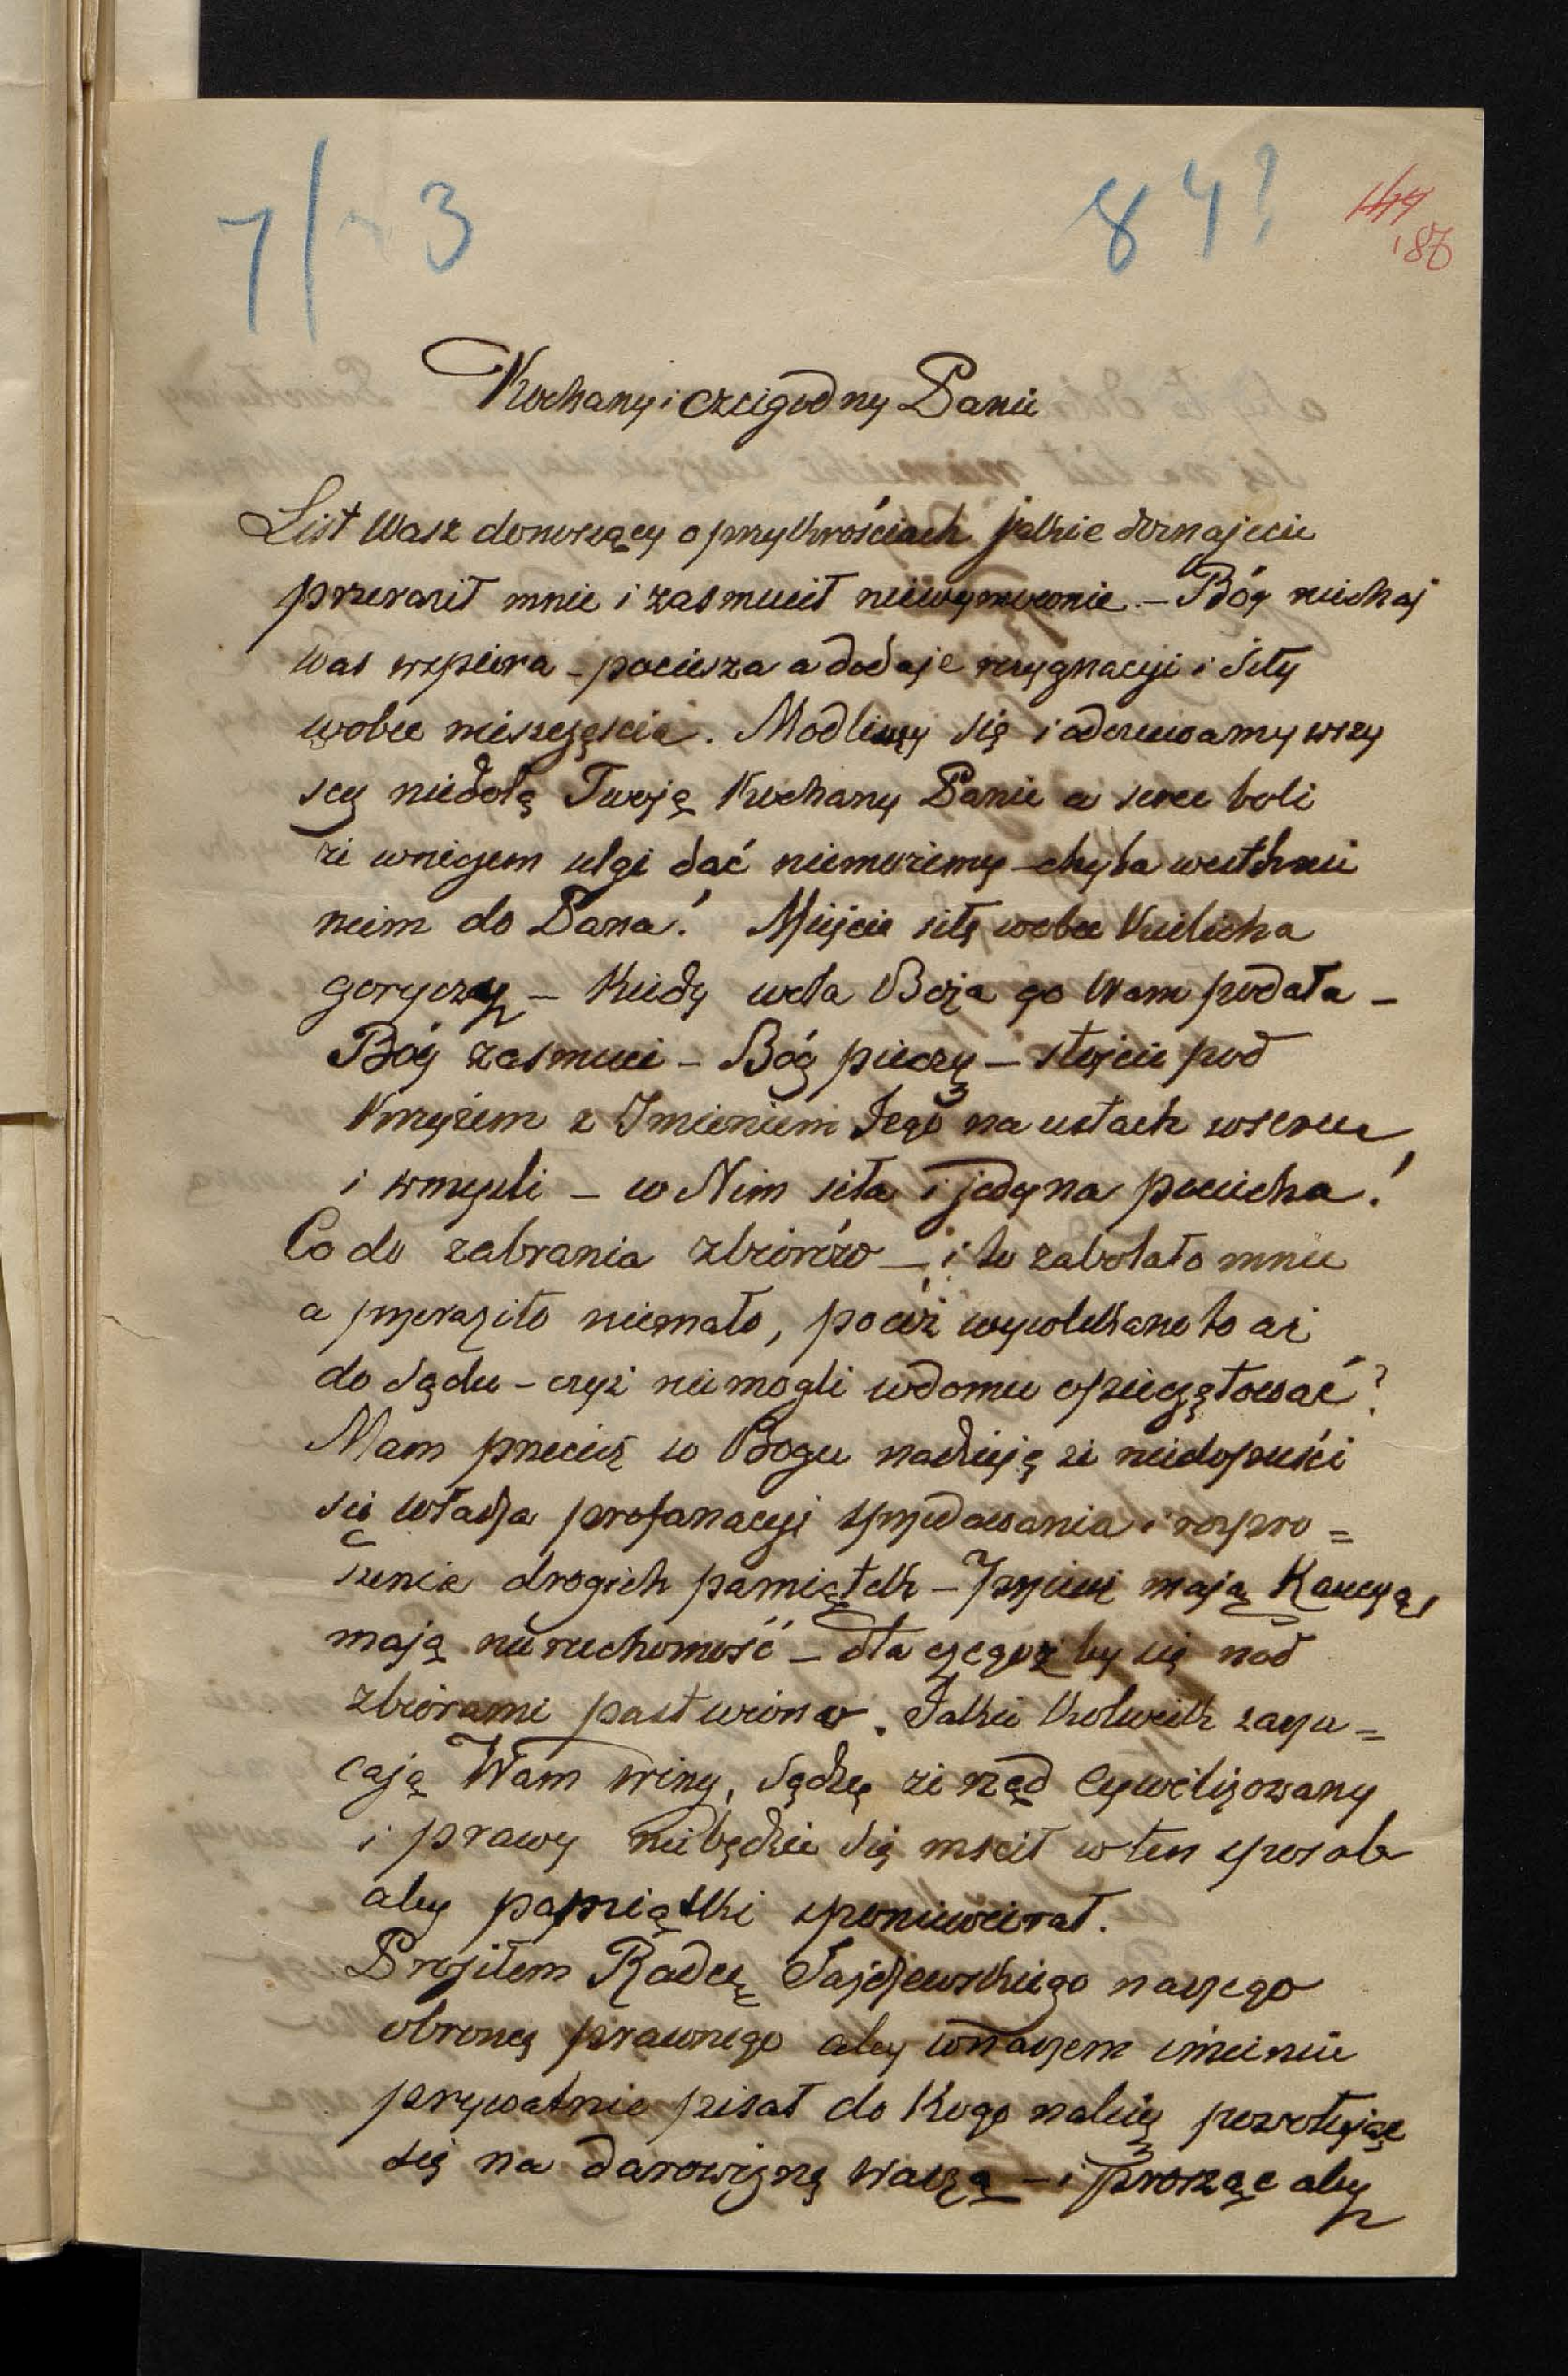 7/3 84? 144
186
Kochany i czcigodny Panie
List Wasz donoszący o przykrościach jakie doznajecie
przeraził mnie i zasmucił niewymownie. – Bóg niechaj
Was wspiera – pociesza a dodaje rezygnacyi i siły
wobec nieszczęścia. Modlimy się i odczuwamy wszy
scy niedolę Twoję Kochany Panie a serce boli
że wniczem ulgi dać niemożemy – chyba westchnie
niem do Pana! Miejcie siłę wobec Kielicha
goryczy – Kiedy wola Boża go Wam podała –
Bóg zasmuci – Bóg pieczy – stójcie pod
Krzyżem z Imieniem Jego na ustach wsercu
i wmyśli – w Nim siła i jedyna pociecha!
Co do zabrania zbiorów – i to zabolało mnie
a przeraziło niemało, pocóż wywlekano to aż
do Sądu – czyż niemogli wdomu opieczętować?
Mam przecież w Bogu nadzieję że niedopuści
się władza profanacyi sprzedawania i rozpro=
szenia drogich pamiątek – Przecież mają Kaucyą,
mają nieruchomość – dla czegoż by się nad
zbiorami pastwiono. Jakie kolwiek zarzu=
cają Wam winy, sądzę że rząd cywilizowany
i prawy niebędzie się mścił w ten sposób
aby pamiątki sponiewierał.
Prosiłem Radcę Sajdzewskiego naszego
obrońcę prawnego aby wnaszem imieniu
prywatnie pisał do Kogo należy powołując
się na darowiznę Waszą – i prosząc aby